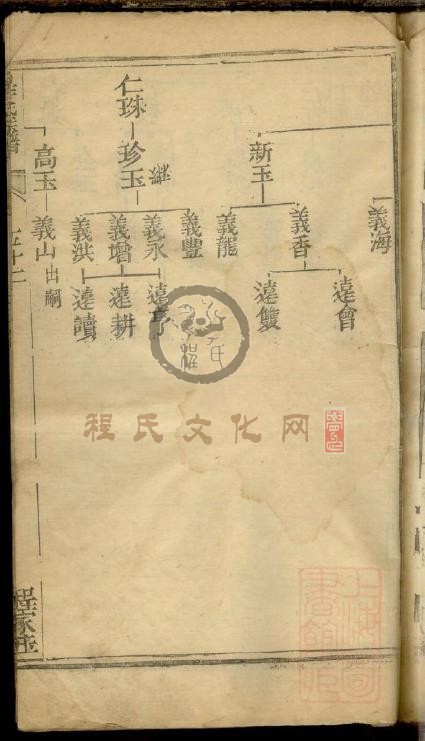 義海
新玉
義香
義龍
遠會
遠雙
仁珠
珍玉
繼
義豐
義永
義增
義洪
遠亨
遠耕
遠讀
高玉
義山
出嗣
五十二
程家莊
程氏文化网
上海圖書館藏